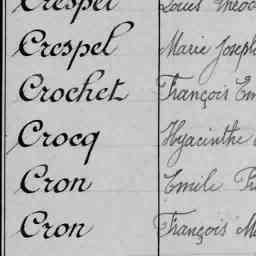 Crespel Louis
Crespel Marie Joseph
Crochet François
Crocq Hyacinthe
Cron Emile
Cron François